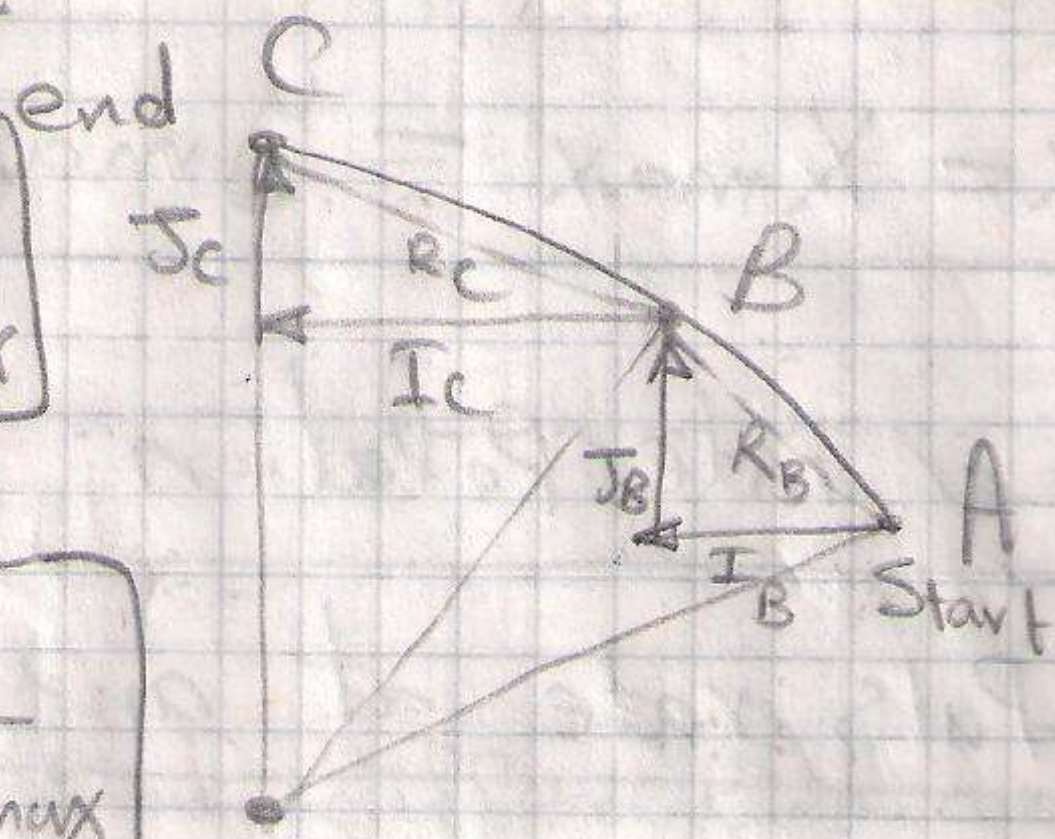 C
end
J_C
R_C
B
I_C
J_B
R_B
A
I_B
Start
max